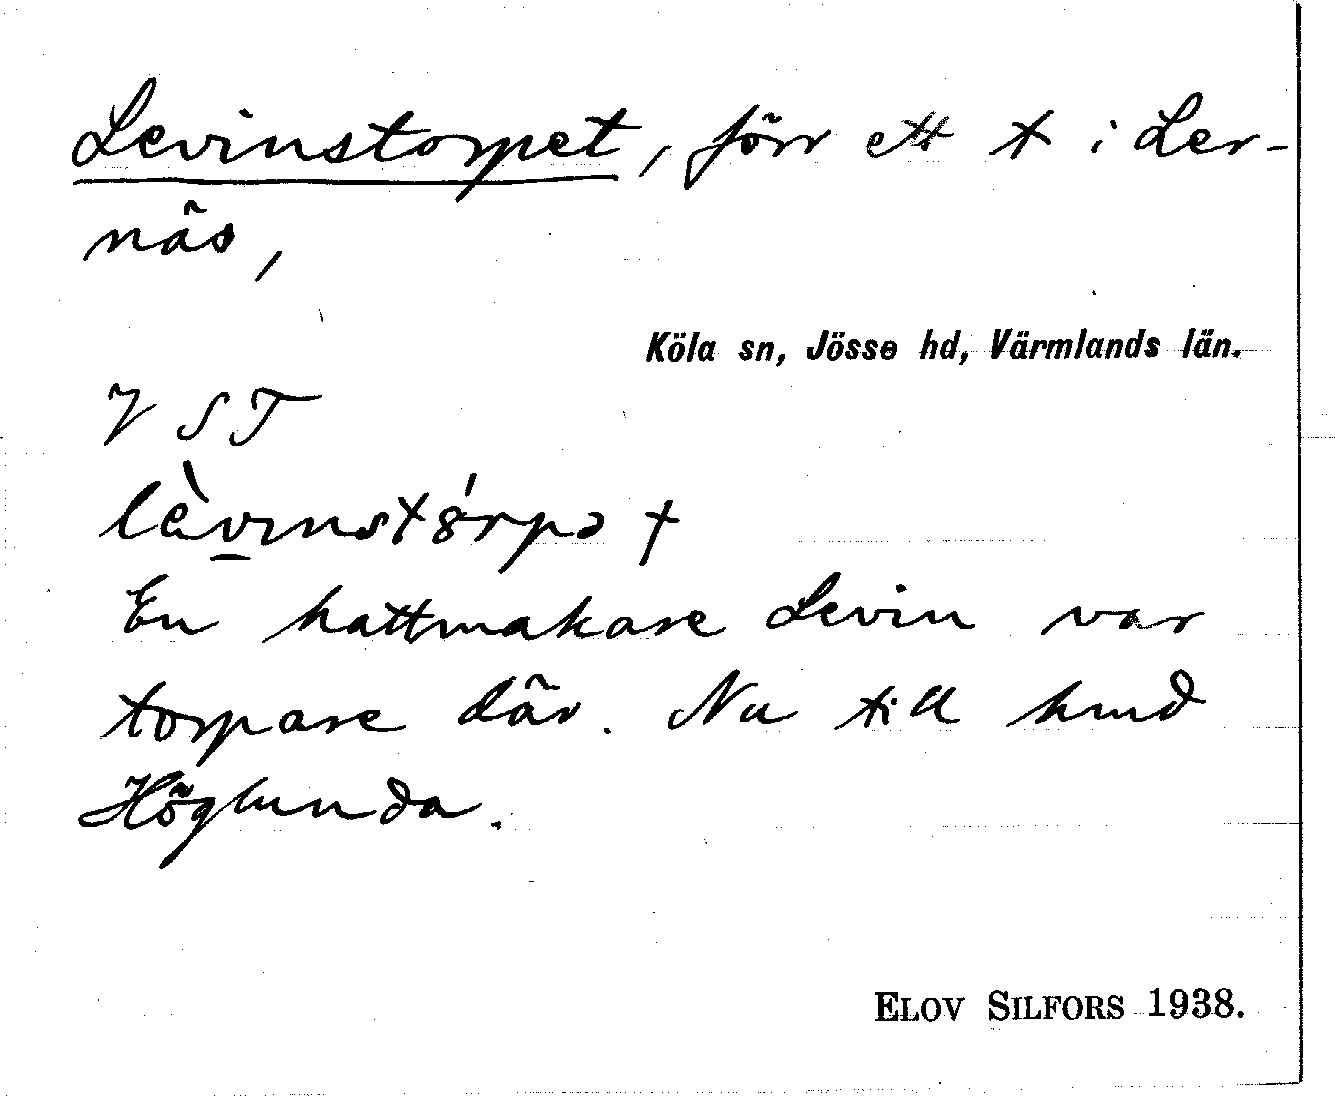 Levinstorpet, förr ett t i Ler-
näs,
Köla sn, Jösse hd, Värmlands län.
V S T
En hattmakare Levin var
torpare där. Nu till hmd
Höglunda.
ELOV SILFORS 1938.